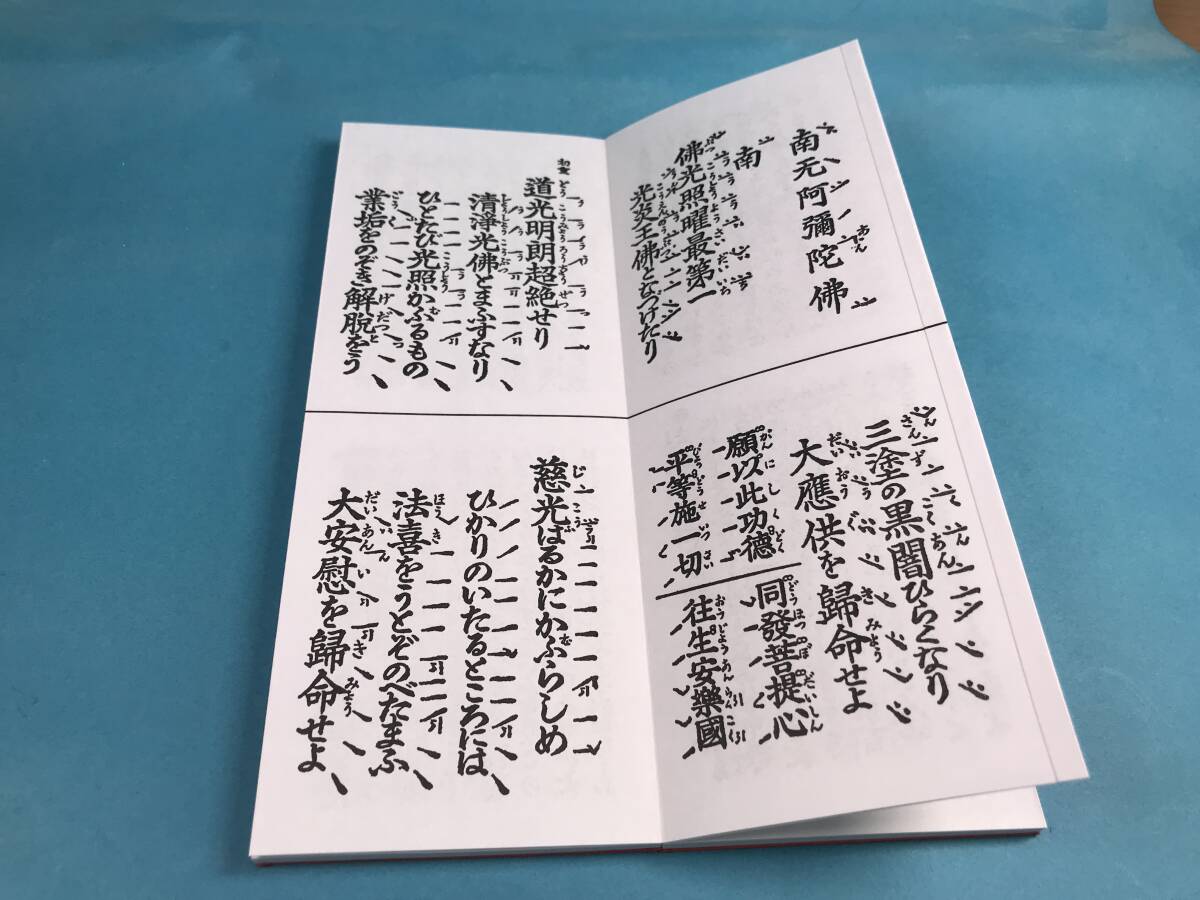 南无阿彌陀佛
南
佛光照曜最第一
光炎王佛となづけたり
三塗の黒闇ひらくなり
大應供を歸命せよ
願以此功德
平等施一切
同發菩提心
往生安樂國
初重
道光明朗超絶せり
清淨光佛とまふすなり
ひとたび光照かふるもの
業垢をのぞき解脱をう
慈光はるかにかふらしめ
ひかりのいたるところには
法喜をうとぞのべたまふ
大安慰を歸命せよ